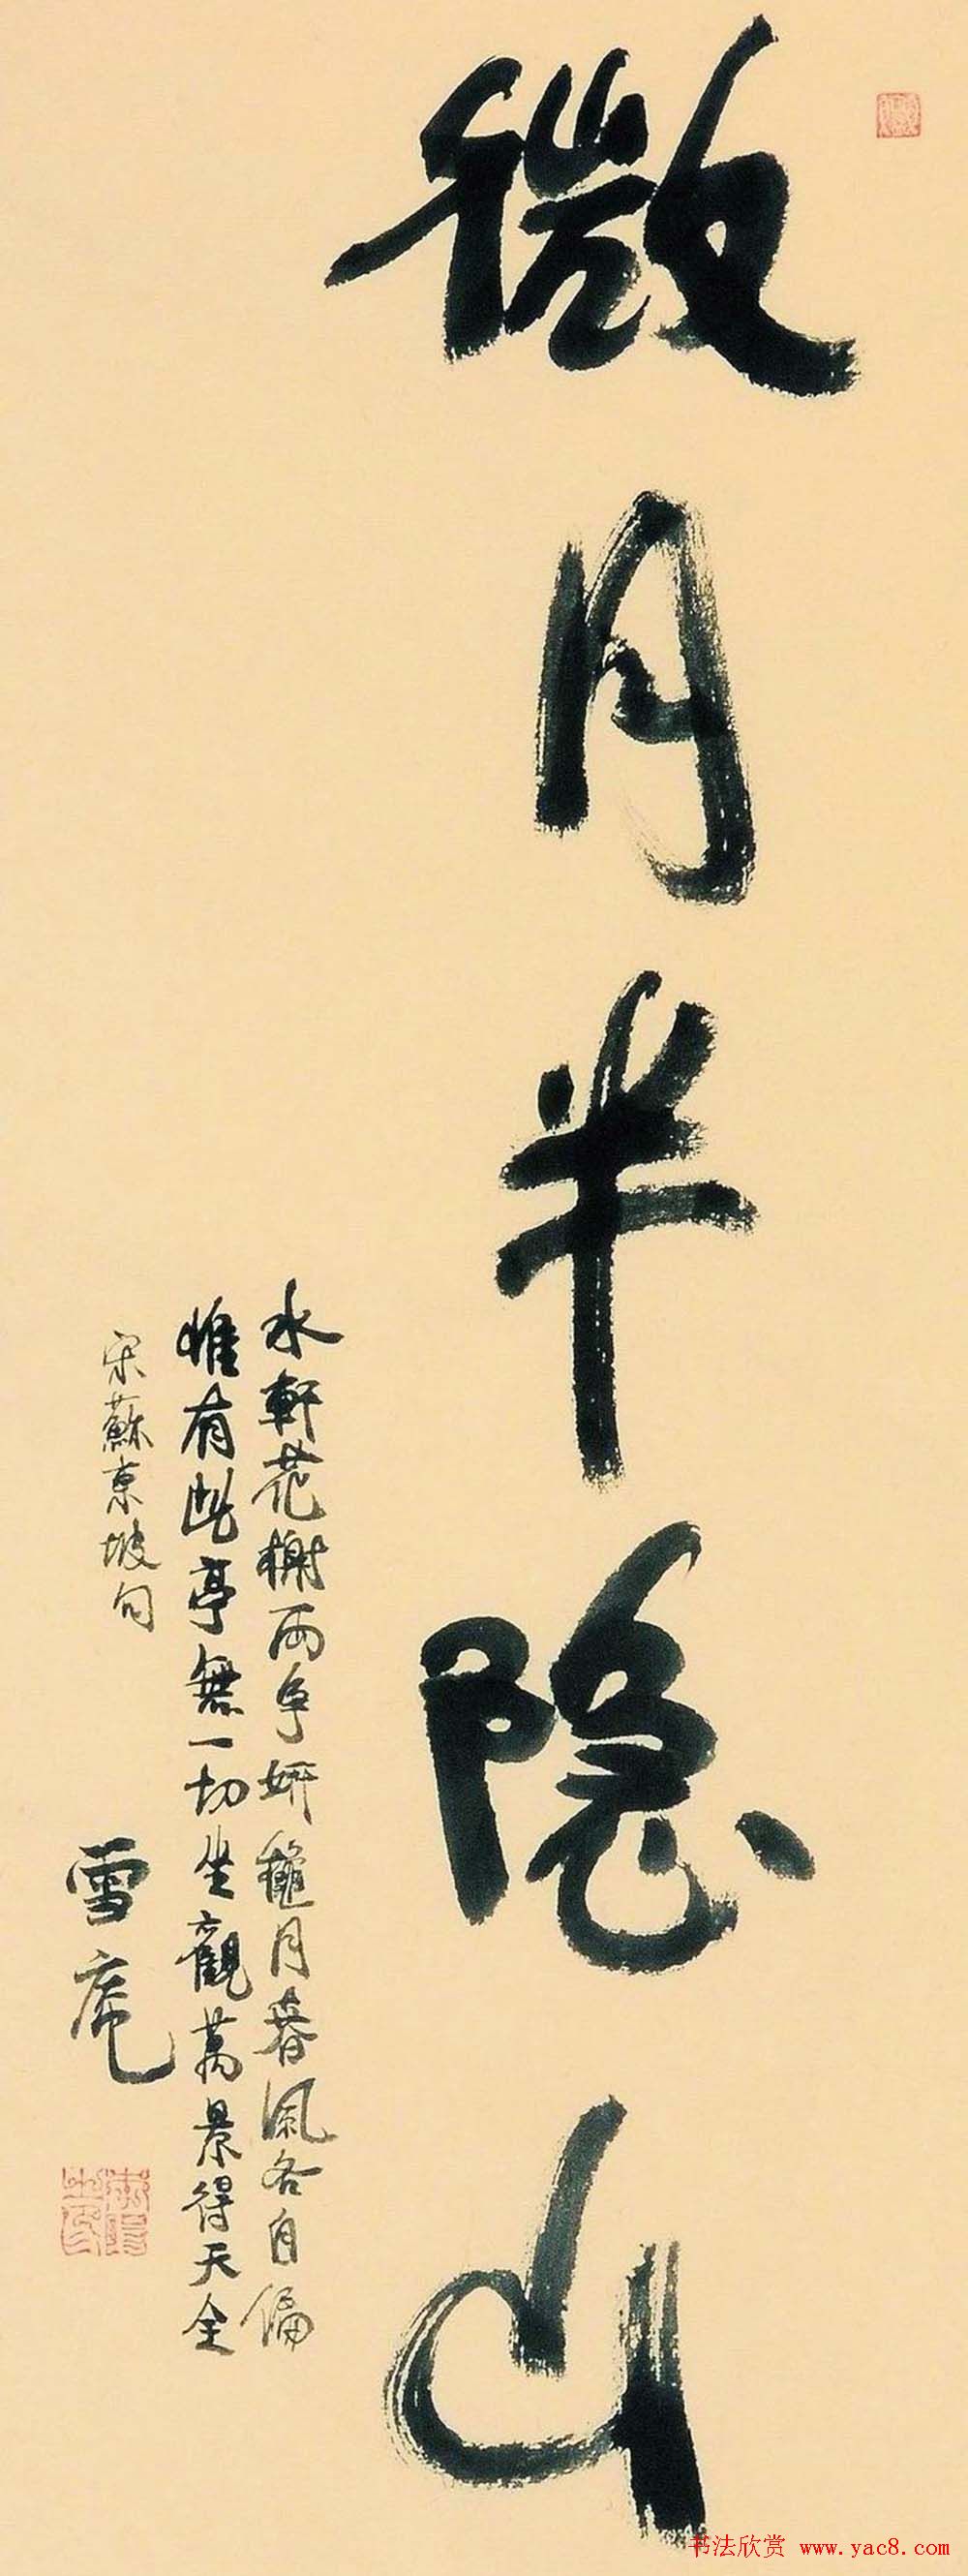 微月半隐山
水軒花榭兩争妍龝月春風各自偏
惟有此亭無一切坐觀萬景得天全
宋蘇東坡句
雪庵
书法欣赏 www.yac8.com